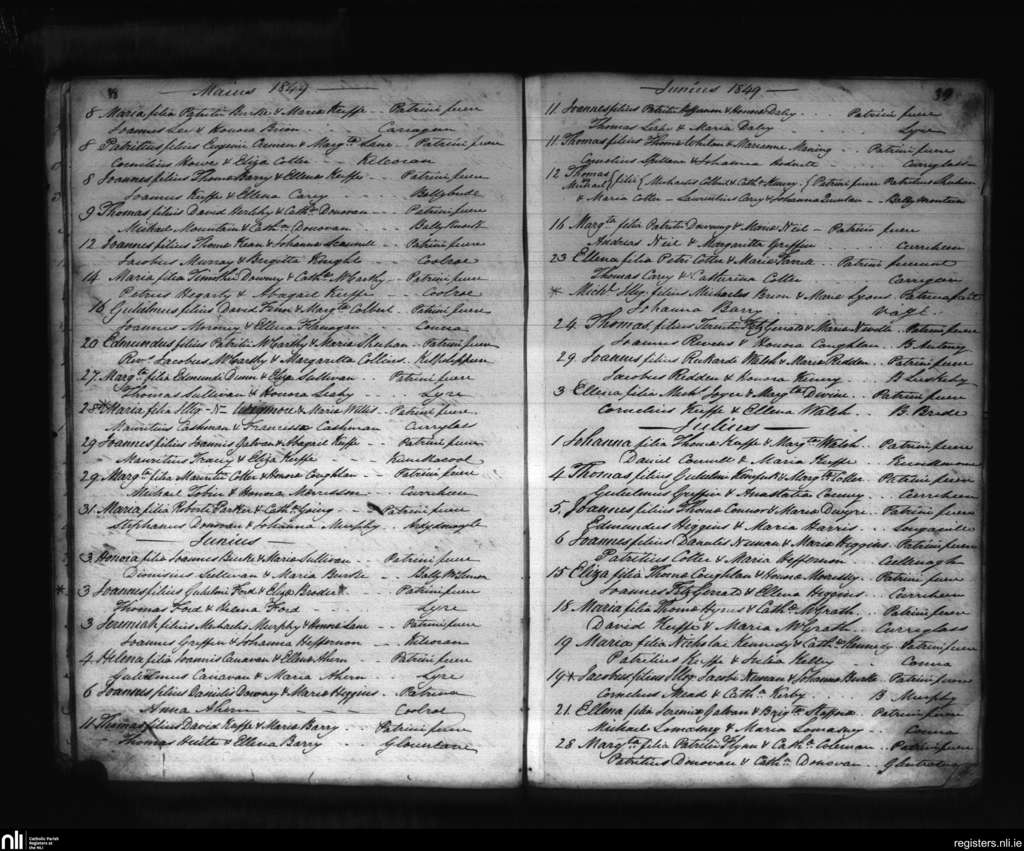 38
Maius 1849
8 Maria filia Patritii Burke & Maria Keeffe - Patrini fuere
Joannes Lee & Honora Brien - - Carragun
8 Patritius filius Eugenii Cremen & Margta Lane - Patrini fuere
Cornelius Howe & Eliza Cotter - - Kilcoran
8 Joannes filius Thomæ Barry & Ellena Keeffe - - Patrini fuere
Joannes Keeffe & Ellena Carey - -
9 Thomas filius David Herlihy & Catha Donovan - - Patrini fuere
Michael Mountain & Catha Donovan - -
12 Joannes filius Thomæ Kean & Johanna - - Patrini fuere
Jacobus Murray & Brigitta Knight - - Coolroe
14 Maria filia Timothei Downey & Catha McCarthy - Patrini fuere
Petrus Hegarty & Abagail Keeffe - - Coolroe
16 Gulielmus filius David Finn & Margta Colbert - Patrini fuere
Joannes Mooney & Ellena Flanagan - - Conna
20 Edmundus filius Patritii McCarthy & Maria Sheehan - Patrini fuere
Revd Jacobus McCarthy & Margaritta Collins
27 Margta filia Edmundi Dunn & Eliza Sullivan - - Patrini fuere
Thomas Sullivan & Honora Leahy - - Lyre
28 * Maria filia Illeg - N- & Maria Willis - Patrini fuere
Mauritius Cashman & Francisca Cashman - Curryglas
29 Joannes filius Joannis Galvan & Abagail Keeffe - - Patrini fuere
Mauritius Tracey & Eliza Keeffe - -
29 Margta filia Mauritii Cotter & Honora Coughlan - - Patrini fuere
Michael Tobin & Honora Morrisson - - Curraheen
31 Maria filia Roberti Parker & Catha Going - - Patrini fuere
Stephanus Donovan & Johanna Murphy
Junius
3 Honora filia Joannes Burke & Maria Sullivan - - Patrini fuere
Dionisius Sullivan & Maria Burke - -
* 3 Joannes filius Gulielmi Ford & Eliza Broder - - Patrini fuere
Thomas Ford & Helena Ford - - Lyre
3 Jeremiah filius Michaelis Murphy & Honora Lane - - Patrini fuere
Joannes Griffin & Johanna Heffernon - - Kilcoran
4 Helena filia Joannis Canavan & Ellena Ahern - - Patrini fuere
Gulielmus Canavan & Maria Ahern - - Lyre
6 Joannes filius Danielis Downey & Maria Higgins - Patrina
Anna Ahern - - Coolroe
11 Thomas filius David Keeffe & Maria Barry - - Patrini fuere
Thomas & Ellena Barry - - Glountane
39
Junius 1849
11 Joannes filius Patritii Heffernon & Honora Daly - - Patrini fuere
Thomas & Maria Daly - - Lyre
11 Thomas filius Thomæ Whelan & Marianne Maning - Patrini fuere
Cornelius Spillane & Johanna - - Curryglass
12 Thomas Michael filii Michaelis Colbert & Catha Patrini fuere Patritius Sheehan
& Maria Cotter - Laurentius Cary & Johanna Quinlan - Ballymountain
16 Margta filia Patritii Downing & Maria Neil - Patrini fuere
Andreas Neil & Margaritta Griffin - - Curraheen
23 Ellena filia Peter Cotter & Maria Farrell - Patrini fuerunt
Thomas Corey & Catherina Cotter - -
* Michl Illeg. filius Michaelis Brown & Maria Lyons - Patrina fuit
Johanna Barry - -
24 Thomas filius FitzGerald & Maria Neville - Patrini fuere
Joannes & Honora Coughlan - -
29 Joannes filius Richardi Walsh & Maria Redden - Patrini fuere
Jacobus Redden & Honora Henry - -
3 Ellena filia Michl Joyce & Margta Devine - - Patrini fuere
Cornelius Keeffe & Ellena Walsh - - B. Bride
Julius
1 Johanna filia Thomæ Keeffe & Margta Walsh - Patrini fuere
Daniel Connell & Maria Keeffe - -
4 Thomas filius Gulielmi & Margta Cotter - Patrini fuere
Gulielmus Griffin & Anastatia Conney - - Curraheen
5 Joannes filius Thomæ Connors & Maria Dwyre - Patrini fuere
Edmundus Higgins & Maria Harris - -
6 Joannes filius Danielis Neenan & Maria Higgins - Patrini fuere
Patritius Cotter & Maria Heffernon - -
15 Eliza filia Thomæ Coughlan & Honora Morrissy - Patrini fuere
Joannes FitzGerald & Ellena Higgins - - Curraheen
18 Maria filia Thomæ Hynes & Catha McGrath - - Patrini fuere
David Keeffe & Maria McGrath - - Curreglass
19 Maria filia Nicholai Kennedy & Catha Kennedy - Patrini fuere
Patritius Keeffe & Helia Kelly - - Conna
19 * Jacobus filius Illeg. Jacobi Neenan & Johanna Burke - Patrini fuere
Cornelius Mead & Catha Kirby - - B. Murphy
21 Ellena filia Jeremia Galvan & Brigta - - Patrini fuere
Michael Lomasney & Maria Lomasney - - Conna
28 Margta filia Patritii Flynn & Catha Coleman - - Patrini fuere
Patritius Donovan & Catha Donovan - -
nli
Catholic Parish
Registers at
the NLI
registers.nli.ie